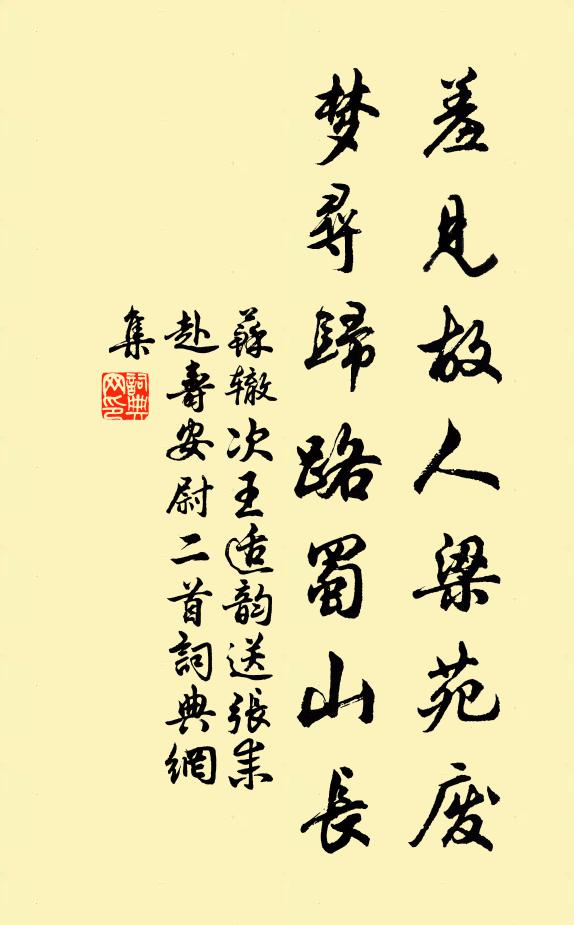 羞见故人梁苑废
梦尋歸路蜀山長
蘇辙次王适韵送張耒
赴壽安尉二首詞典網
集
詞典网印